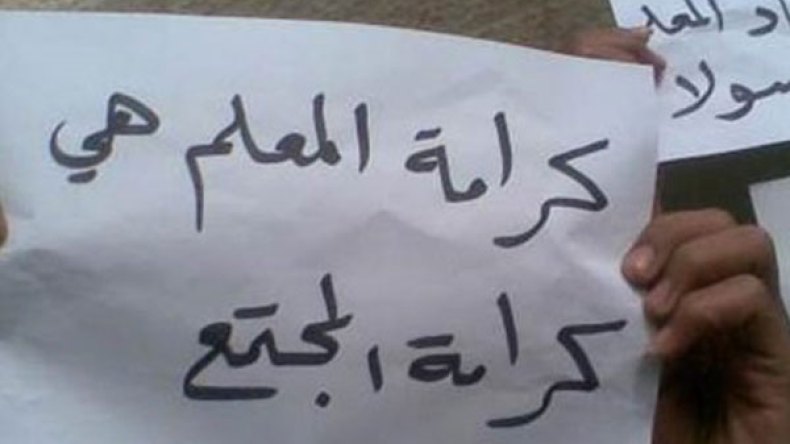 كرامة المعلم هي
كرامة المجتمع
سولا